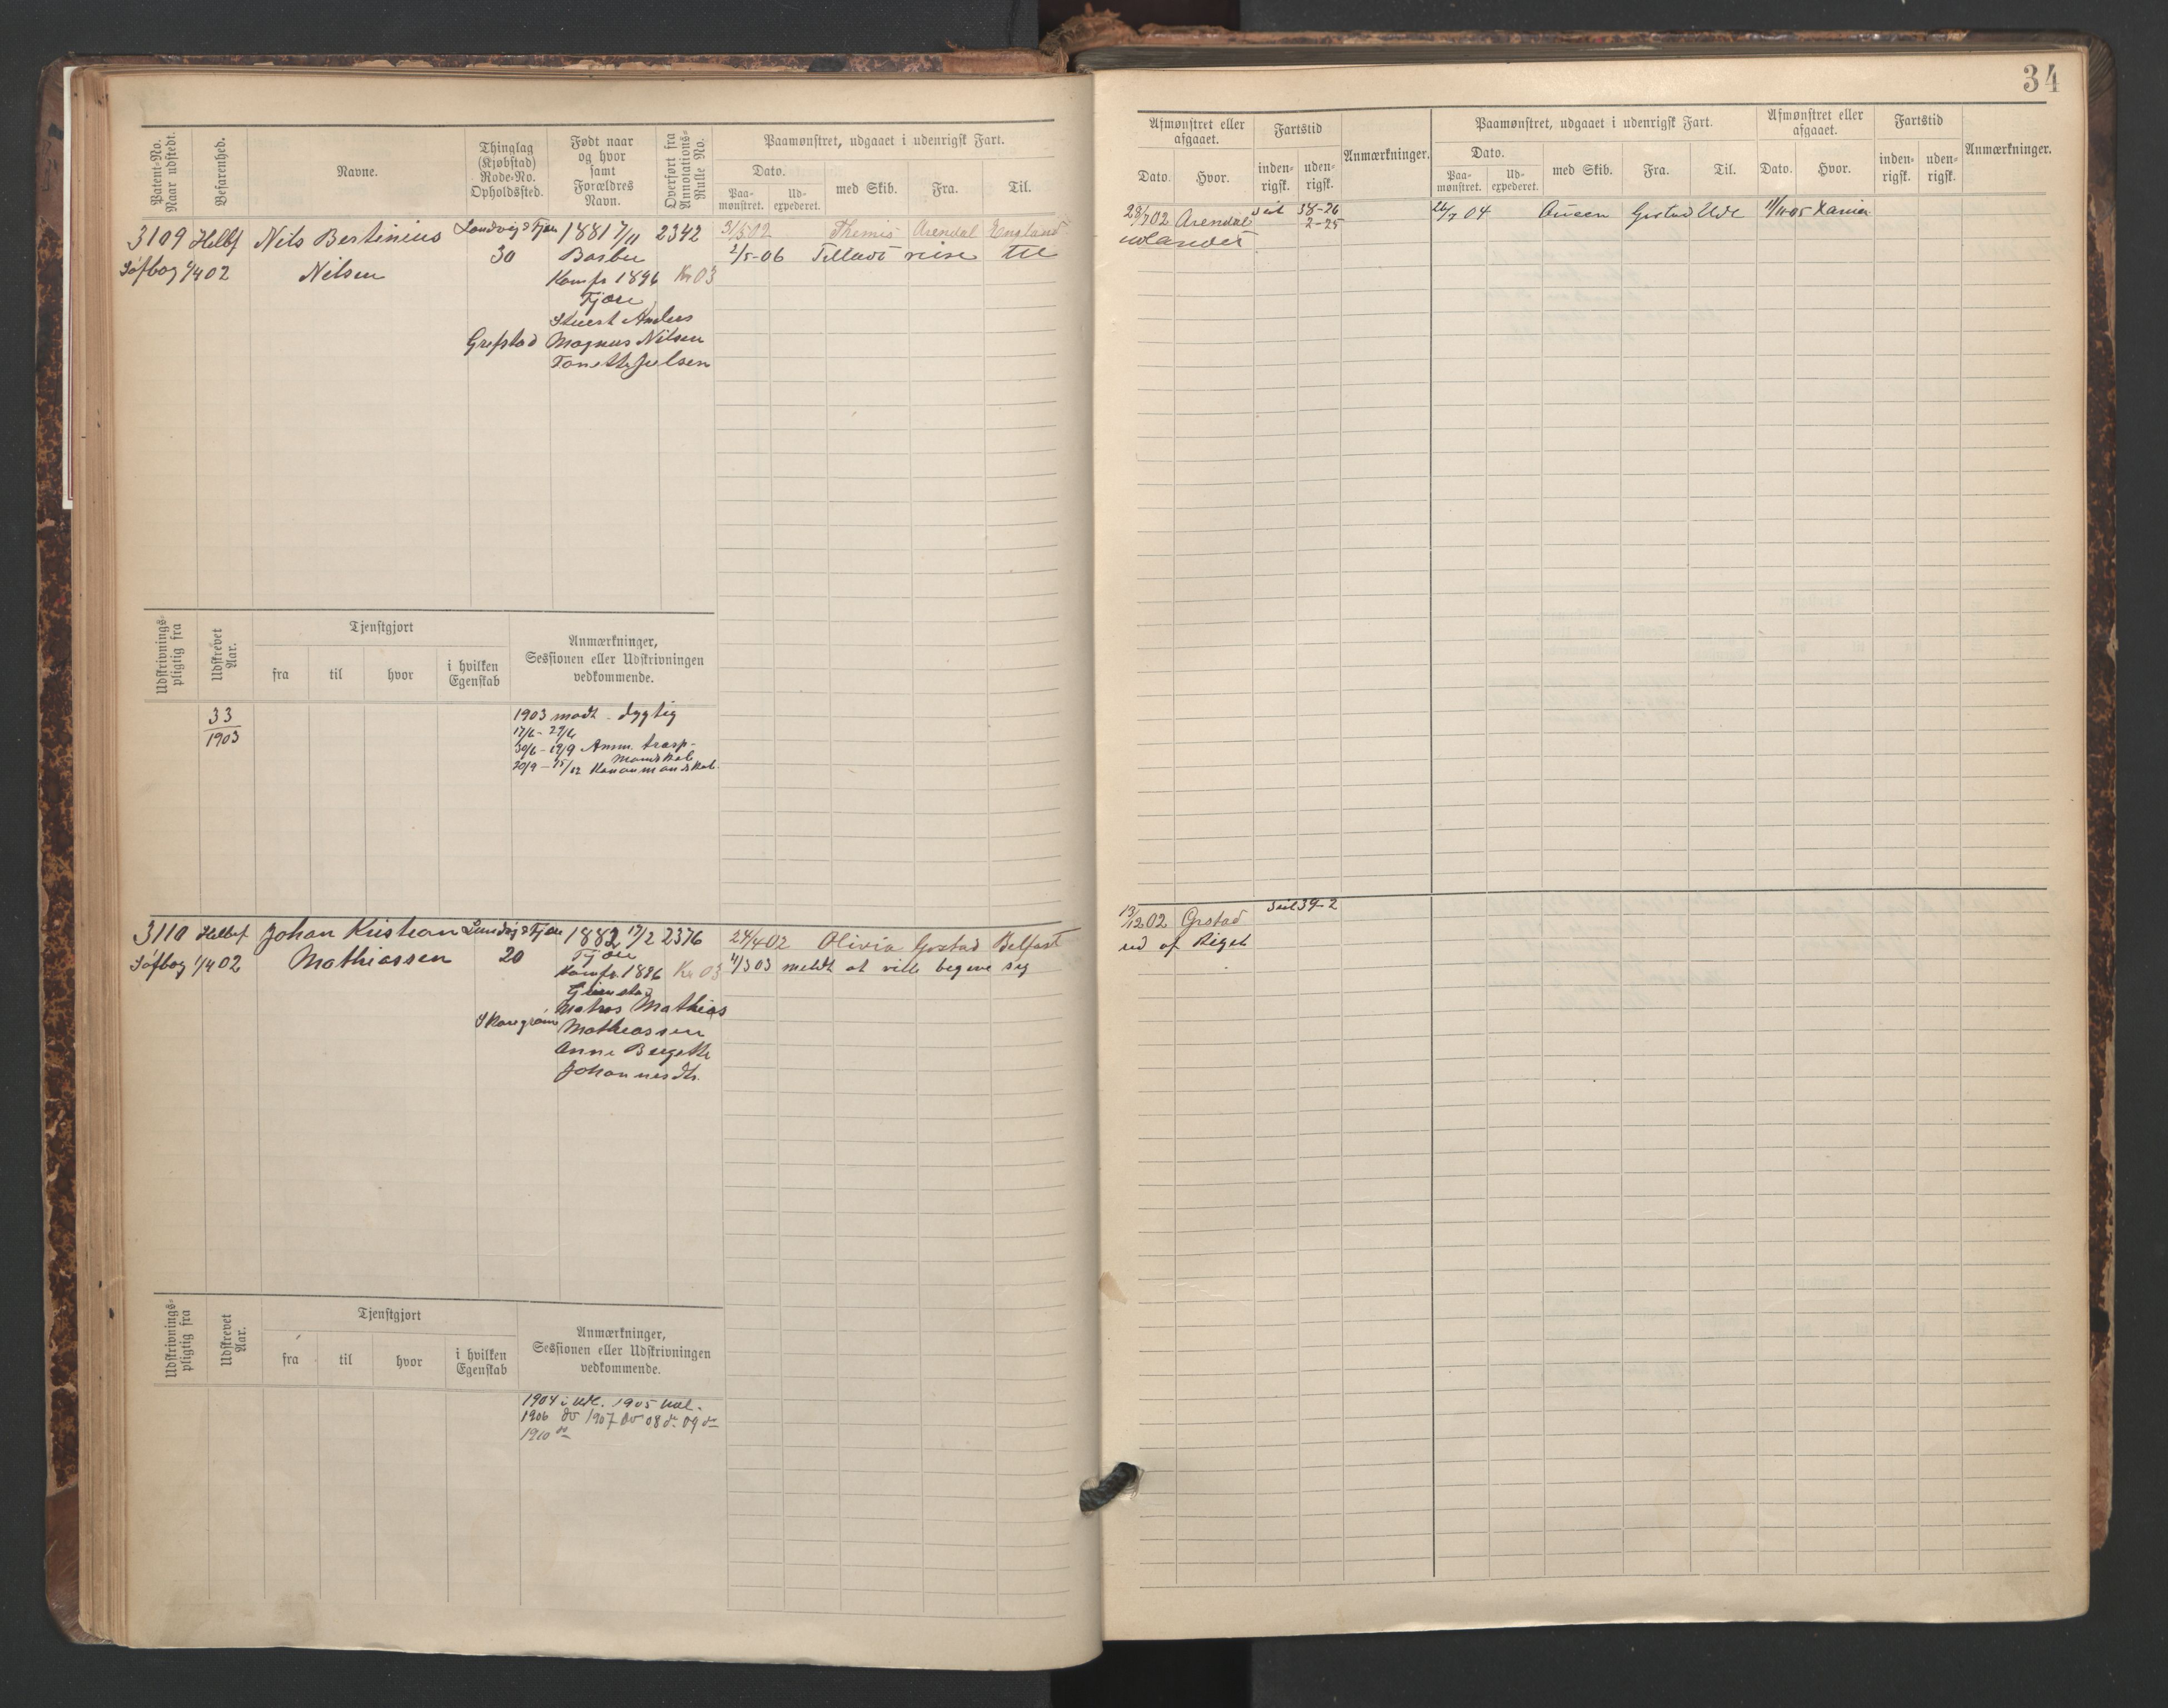 34
Patent-No. Naar udstedt.
Befarenhed.
Navne.
Thinglag (Kjøbstad) Rode-No. Opholdssted.
Født naar og hvor samt Forældres Navn.
Overført fra Annotations-Rulle No.
Paamønstret, udgaaet i udenrigsk Fart.
Dato.
Paa-mønstret.
Ud-expederet.
med Skib.
Fra.
Til.
Afmønstret eller afgaaet.
Dato.
Hvor.
Fartstid
inden-rigsk.
uden-rigsk.
Anmærkninger.
Paamønstret, udgaaet i udenrigsk Fart.
Dato.
Paa-mønstret.
Ud-expederet.
med Skib.
Fra.
Til.
Afmønstret eller afgaaet.
Dato.
Hvor.
Fartstid
inden-rigsk.
uden-rigsk.
Anmærkninger.
3109 Helbf Nils Bertinius Landvig & Fjære 1881 7/11 2342
Søfbog 1/4 02 Nilsen 30 Barbu
Konf. 1896 Kr 03
Fjære
Stuert Anders
Grefstad Magnus Nilsen
Tonette Juelsen
3/5 02 Themis Arendal England
2/5-06 Tilladt reise til
28/7 02 Arendal seil 38-26
2-25
udlandet
26/7 04 Queen Grstad Udl 11/11 05
Udskrivnings-pligtig fra
Udskrevet Aar.
Tjenstgjort
fra
til
hvor
i hvilken Egenskab
Anmærkninger, Sessionen eller Udskrivningen vedkommende.
33
1903
1903 mødt - dygtig
17/6 - 29/6
30/6 - 19/9 Amm. trasp-
mandskab
20/9 - 15/12 Kanonmandskab.
3110 Helbef Johan Kristian Landvig & Fjære 1882 17/2 2376
Søfbog 1/4 02 Mathiassen 20 Fjære
Konf. 1896 Kr 03
Matros Mathias
Mathiassen
Anne Birgitte
Johannesdtr.
24/4 02 Olivia Grstad Belfast
4/3 03 meldt at ville begive sig
13/12 02 Grstad Seil 39-2
ud af Riget
Udskrivnings-pligtig fra
Udskrevet Aar.
Tjenstgjort
fra
til
hvor
i hvilken Egenskab
Anmærkninger, Sessionen eller Udskrivningen vedkommende.
1904 i udl. 1905 udl.
1906 do 1907 do 08 do 09 do
1910 do